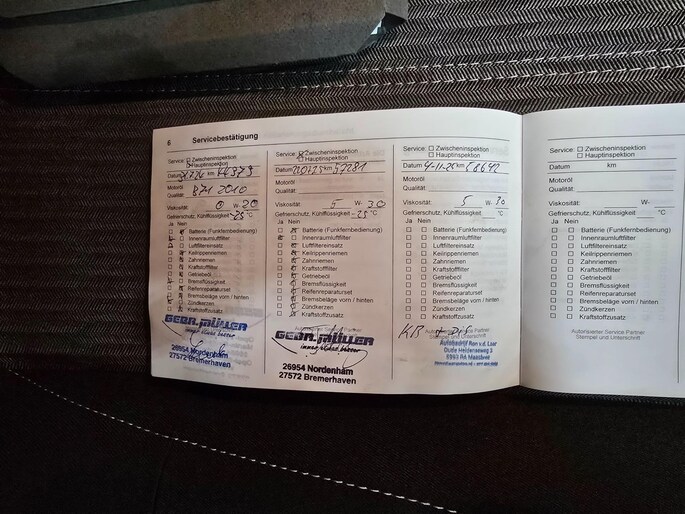 6 Servicebestätigung
Service: Zwischeninspektion
Hauptinspektion
Datum km 44373
Motoröl
Qualität: B71 2010
Viskosität: 0 W- 20
Gefrierschutz, Kühlflüssigkeit -25 °C
Ja Nein
Batterie (Funkfernbedienung)
Innenraumluftfilter
Luftfiltereinsatz
Keilrippenriemen
Zahnriemen
Kraftstofffilter
Getriebeöl
Bremsflüssigkeit
Reifenreparaturset
Bremsbeläge vorn / hinten
Zündkerzen
Kraftstoffzusatz
GEBR. MÜLLER
immer etwas besser
26954 Nordenham
27572 Bremerhaven
Service: Zwischeninspektion
Hauptinspektion
Datum km 57281
Motoröl
Qualität:
Viskosität: 5 W- 30
Gefrierschutz, Kühlflüssigkeit -25 °C
Ja Nein
Batterie (Funkfernbedienung)
Innenraumluftfilter
Luftfiltereinsatz
Keilrippenriemen
Zahnriemen
Kraftstofffilter
Getriebeöl
Bremsflüssigkeit
Reifenreparaturset
Bremsbeläge vorn / hinten
Zündkerzen
Kraftstoffzusatz
GEBR. MÜLLER
immer etwas besser
26954 Nordenham
27572 Bremerhaven
Service: Zwischeninspektion
Hauptinspektion
Datum 4-11-25 km 58642
Motoröl
Qualität:
Viskosität: 5 W- 30
Gefrierschutz, Kühlflüssigkeit °C
Ja Nein
Batterie (Funkfernbedienung)
Innenraumluftfilter
Luftfiltereinsatz
Keilrippenriemen
Zahnriemen
Kraftstofffilter
Getriebeöl
Bremsflüssigkeit
Reifenreparaturset
Bremsbeläge vorn / hinten
Zündkerzen
Kraftstoffzusatz
KB +
Autobedrijf Ron v.d. Laar
Oude Heldenseweg 3
5993 PA Maasbree
Service: Zwischeninspektion
Hauptinspektion
Datum km
Motoröl
Qualität:
Viskosität: W-
Gefrierschutz, Kühlflüssigkeit °C
Ja Nein
Batterie (Funkfernbedienung)
Innenraumluftfilter
Luftfiltereinsatz
Keilrippenriemen
Zahnriemen
Kraftstofffilter
Getriebeöl
Bremsflüssigkeit
Reifenreparaturset
Bremsbeläge vorn / hinten
Zündkerzen
Kraftstoffzusatz
Autorisierter Service Partner
Stempel und Unterschrift